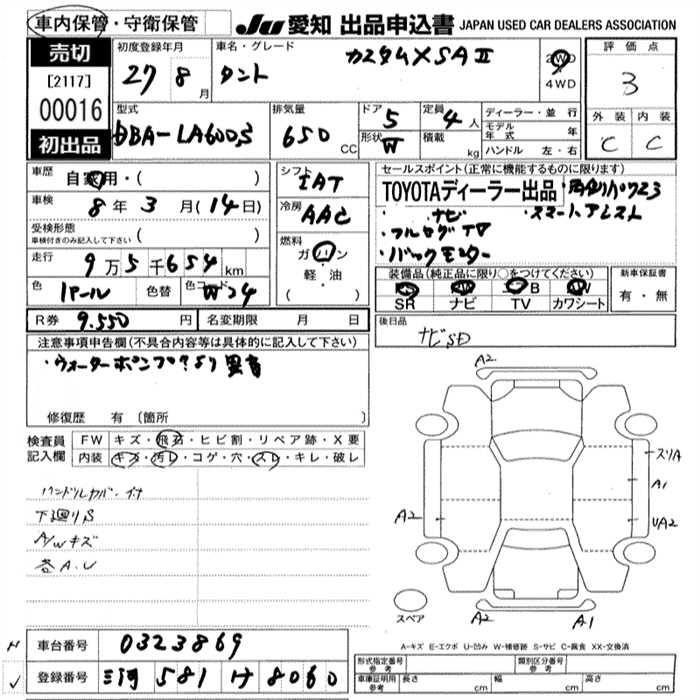 車内保管・守衛保管
JU 愛知 出品申込書 JAPAN USED CAR DEALERS ASSOCIATION
売切
[2117]
00016
初出品
初度登録年月
27 8月
車名・グレード
タント カスタムXSAⅡ
2WD
4WD
評価点
3
外装 内装
C C
型式
DBA-LA600S
排気量
650 CC
ドア
5
形状
W
定員
4人
積載
kg
ディーラー・並行
モデル年式 年
ハンドル 左・右
車歴
自家用・( )
車検
8年3月(14日)
受検形態
車検付きのみ記入して下さい ( )
走行
9万5千654km
色
パール
色替
色コード
W24
シフト
IAT
冷房
AAC
燃料
ガソリン
軽・油
( )
セールスポイント(正常に機能するものに限ります)
TOYOTAディーラー出品 ・両側パワスラ
・ナビ ・スマートアシスト
・フルセグTV
・バックモニター
装備品(純正品に限り○をつけてください)
SR ナビ TV カワシート
新車保証書
有・無
R券 9.550円
名変期限 月 日
後日品
ナビSD
注意事項申告欄(不具合内容等は具体的に記入して下さい)
・ウォーターポンプより異音
修復歴 有 〔箇所
検査員記入欄
FW キズ・飛石・ヒビ割・リペア跡・X要
内装 キズ・汚レ・コゲ・穴・スレ・キレ・破レ
下廻りS
A/Wキズ
各A.U
A2
スリA
A1
UA2
A2
A2
A1
スペア
A-キズ E-エクボ U-凹み W-補修跡 S-サビ C-腐食 XX-交換済
車台番号 0323869
登録番号 三河 581 け 8060
型式指定番号
参考
類別区分番号
参考
車庫証明用
参考
長さ cm
幅 cm
高さ cm